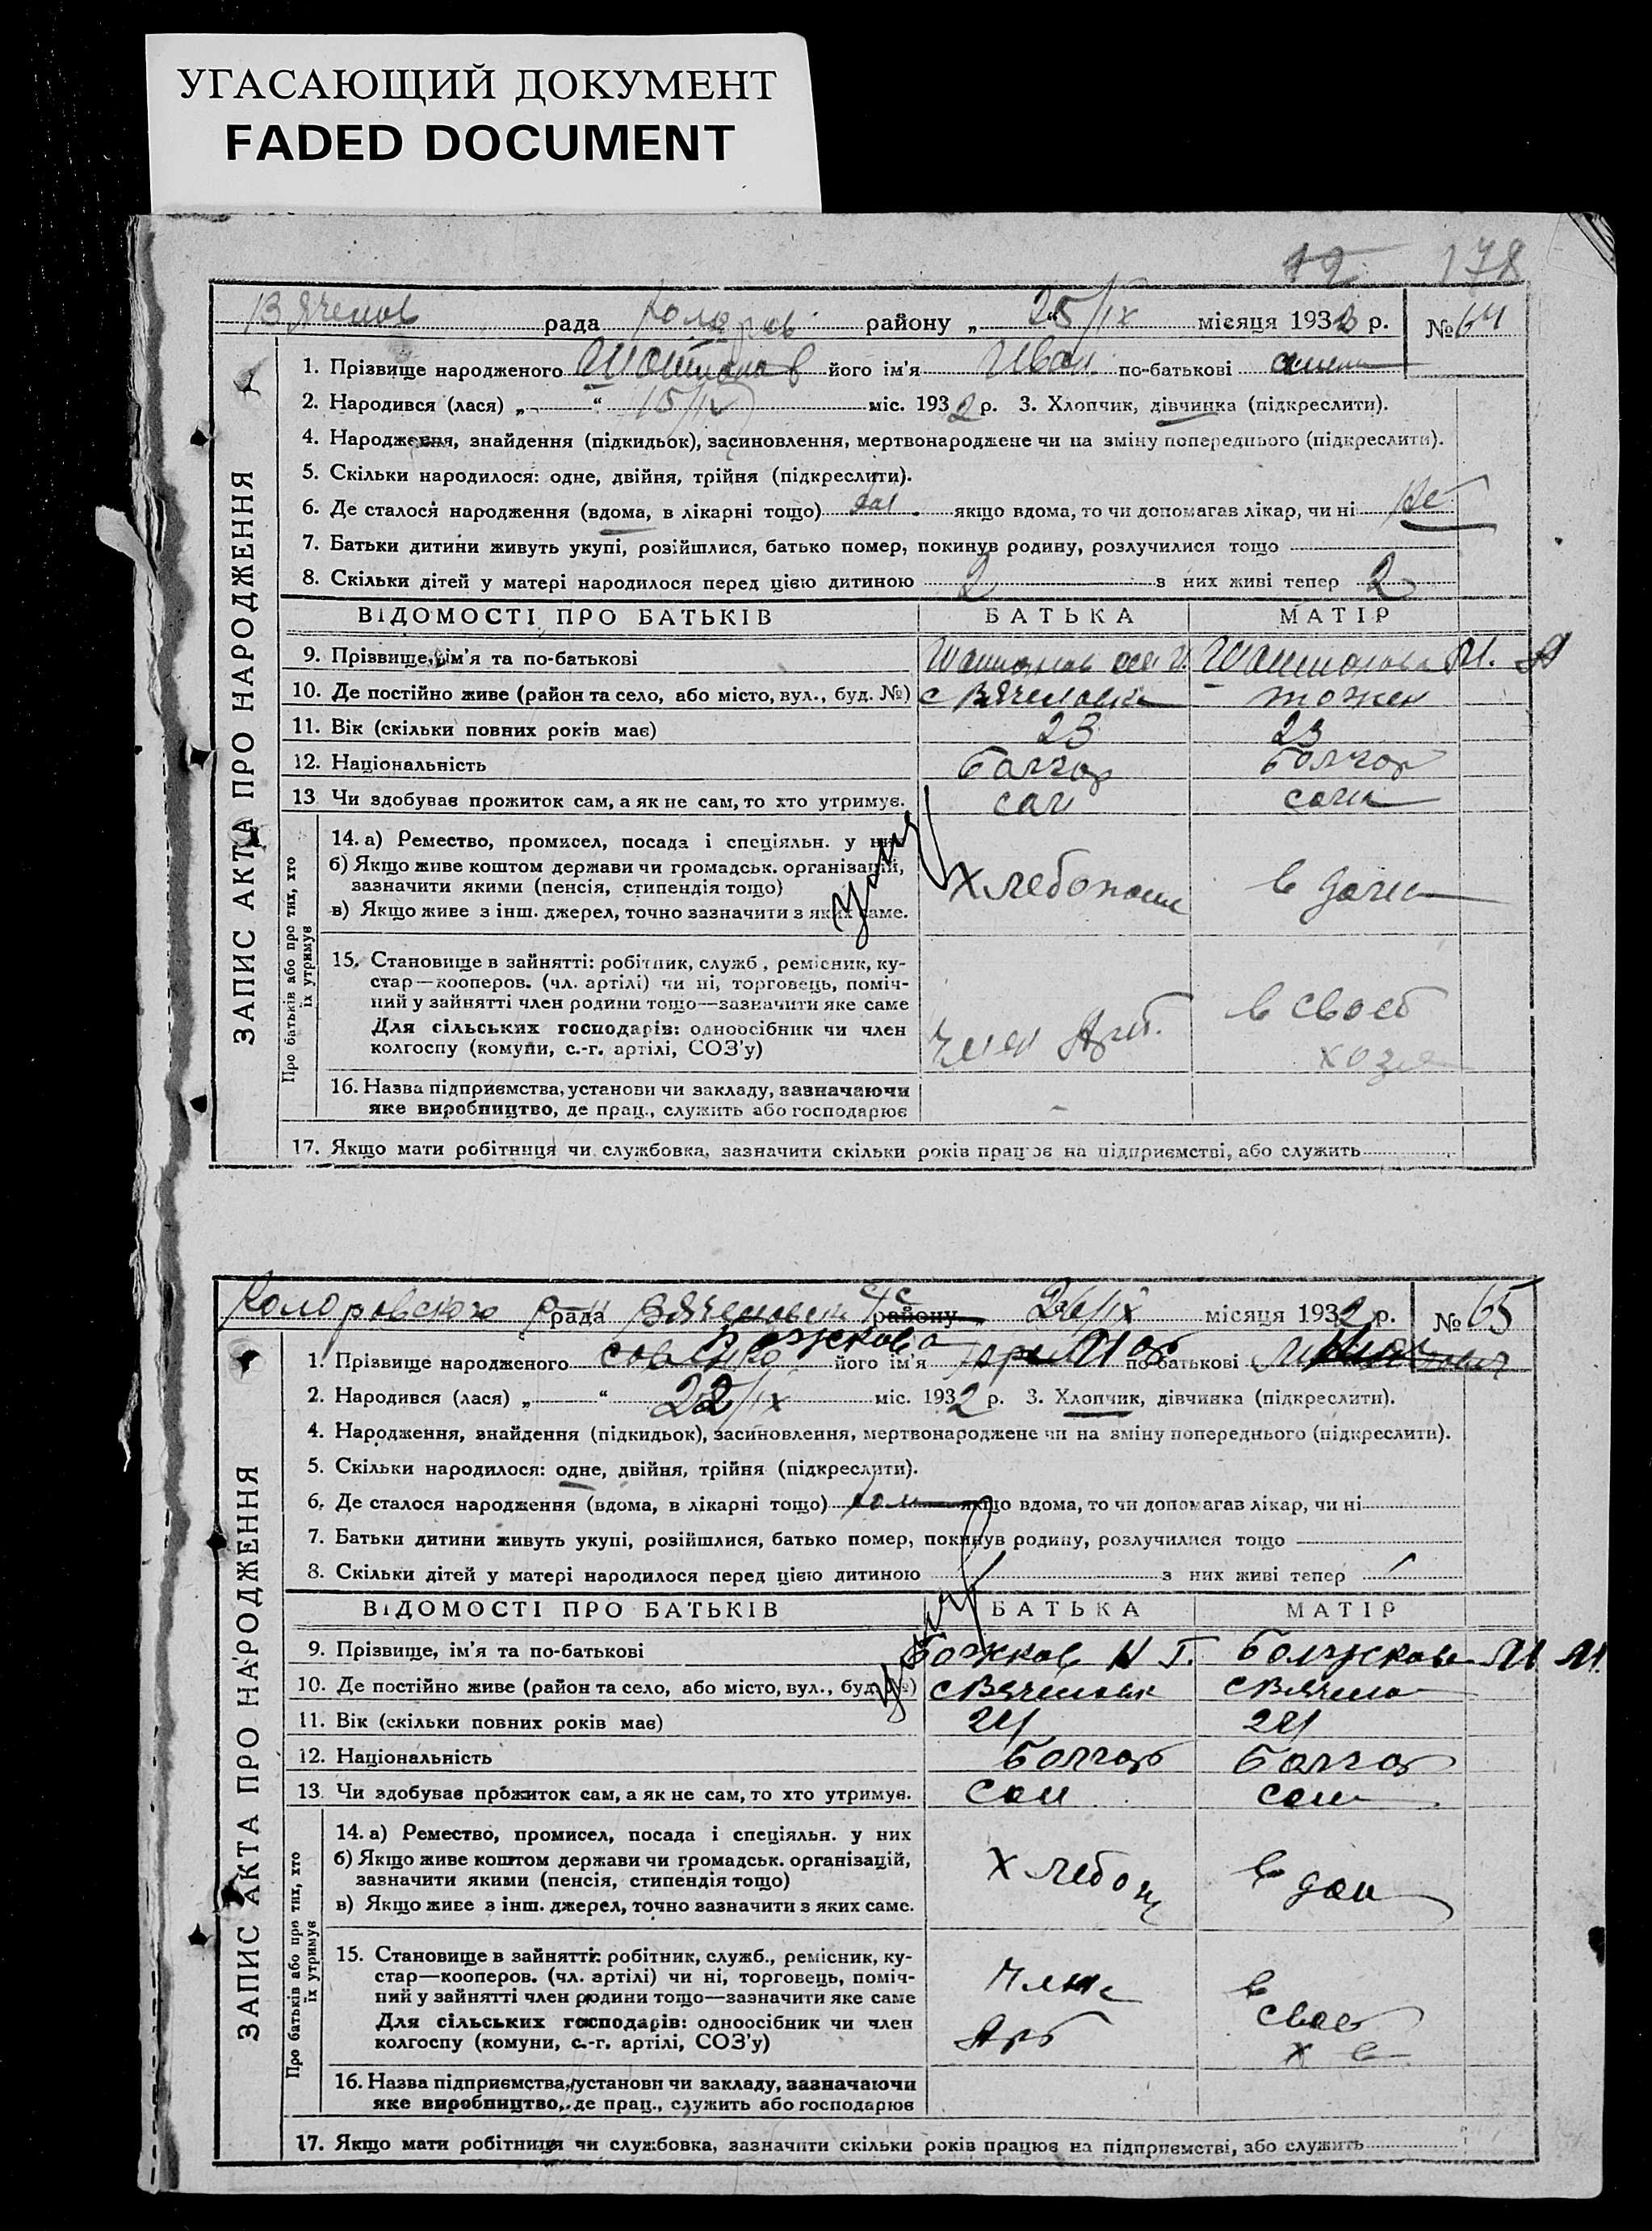 УГАСАЮЩИЙ ДОКУМЕНТ
FADED DOCUMENT
12 178
Вячелов рада Коларов району „ 25/IX місяця 1932 р. № 64
1. Прізвище народженого його ім'я Иван по-батькові
2. Народився (лася) „ “ 15/IX міс. 1932 р. 3. Хлопчик, дівчинка (підкреслити).
4. Народження, знайдення (підкидьок), засиновлення, мертвонароджене чи на зміну попереднього (підкреслити).
5. Скільки народилося: одне, двійня, трійня (підкреслити).
6. Де сталося народження (вдома, в лікарні тощо) якщо вдома, то чи допомагав лікар, чи ні
7. Батьки дитини живуть укупі, розійшлися, батько помер, покинув родину, розлучилися тощо
8. Скільки дітей у матері народилося перед цією дитиною 2 з них живі тепер 2
ВІДОМОСТІ ПРО БАТЬКІВ БАТЬКА МАТІР
9. Прізвище, ім'я та по-батькові
10. Де постійно живе (район та село, або місто, вул., буд. №) с Вячеловка тоже
11. Вік (скільки повних років має) 23 23
12. Національність болгар болгар
13 Чи здобував прожиток сам, а як не сам, то хто утримує. сам сама
14. а) Ремество, промисел, посада і спеціяльн. у них
б) Якщо живе коштом держави чи громадськ. організацій,
зазначити якими (пенсія, стипендія тощо)
в) Якщо живе з інш. джерел, точно зазначити з яких саме.
Хлебопаш в дома
15. Становище в зайнятті: робітник, служб, ремісник, ку-
стар—кооперов. (чл. артілі) чи ні, торговець, поміч-
ний у зайнятті член родини тощо—зазначити яке саме
Для сільських господарів: одноосібник чи член
колгоспу (комуни, с.-г. артілі, СОЗ'у)
член Арт. в своеб
хозя
16. Назва підприємства, установи чи закладу, зазначаючи
яке виробництво, де прац., служить або господарює
17. Якщо мати робітниця чи службовка, зазначити скільки років працює на підприємстві, або служить
ЗАПИС АКТА ПРО НАРОДЖЕННЯ
Про батьків або про тих, хто
їх утримує
Коларовского рада Вячеловск с/с району 26/IX місяця 1932 р. № 65
Божкова
1. Прізвище народженого його ім'я по-батькові
2. Народився (лася) „ “ 22/IX міс. 1932 р. 3. Хлопчик, дівчинка (підкреслити).
4. Народження, знайдення (підкидьок), засиновлення, мертвонароджене чи на зміну попереднього (підкреслити).
5. Скільки народилося: одне, двійня, трійня (підкреслити).
6. Де сталося народження (вдома, в лікарні тощо) дом якщо вдома, то чи допомагав лікар, чи ні
7. Батьки дитини живуть укупі, розійшлися, батько помер, покинув родину, розлучилися тощо
8. Скільки дітей у матері народилося перед цією дитиною з них живі тепер
ВІДОМОСТІ ПРО БАТЬКІВ БАТЬКА МАТІР
9. Прізвище, ім'я та по-батькові Божков И Г. Божкова М М.
10. Де постійно живе (район та село, або місто, вул., буд. №) с Вячеловк с Вячело
11. Вік (скільки повних років має) 24 24
12. Національність болгар болгар
13 Чи здобував прожиток сам, а як не сам, то хто утримує. сам сам
14. а) Ремество, промисел, посада і спеціяльн. у них
б) Якщо живе коштом держави чи громадськ. організацій,
зазначити якими (пенсія, стипендія тощо)
в) Якщо живе з інш. джерел, точно зазначити з яких саме.
Хлебоп в дом
15. Становище в зайнятті: робітник, служб., ремісник, ку-
стар—кооперов. (чл. артілі) чи ні, торговець, поміч-
ний у зайнятті член родини тощо—зазначити яке саме
Для сільських господарів: одноосібник чи член
колгоспу (комуни, с.-г. артілі, СОЗ'у)
член
Арт
в
своеб
х в
16. Назва підприємства, установи чи закладу, зазначаючи
яке виробництво, де прац., служить або господарює
17. Якщо мати робітниця чи службовка, зазначити скільки років працює на підприємстві, або служить
ЗАПИС АКТА ПРО НАРОДЖЕННЯ
Про батьків або про тих, хто
їх утримує